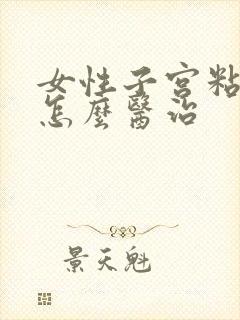 女性子宫粘
怎麼醫治
景天魁